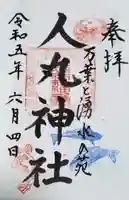 奉拝
万葉と湧水の苑
人丸神社
令和五年六月四日